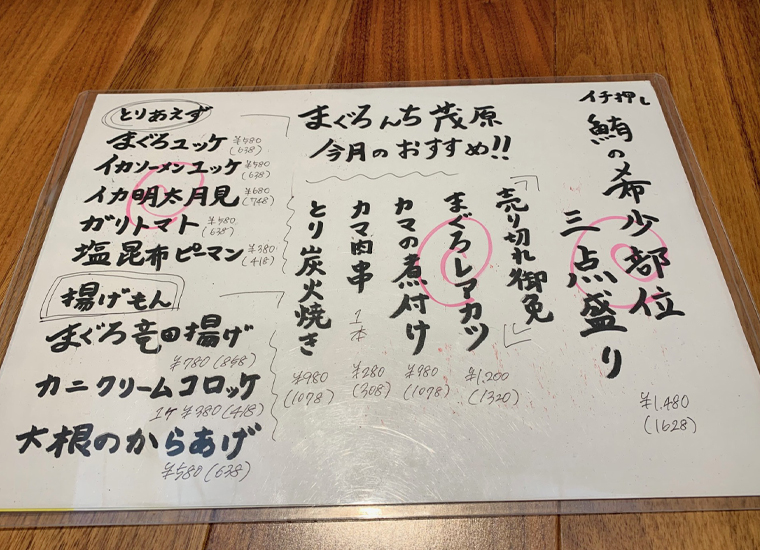 イチ押し
鮪の希少部位
三点盛り
¥1.480
(1628)
まぐろんち 茂原
今月のおすすめ!!
売り切れ御免
まぐろレアカツ
¥1.200
(1320)
カマの煮付け
¥980
(1078)
カマ肉串 1本
¥280
(308)
とり炭火焼き
¥980
(1078)
とりあえず
まぐろユッケ ¥580
(638)
イカソーメンユッケ ¥580
(638)
イカ明太月見 ¥680
(748)
ガリトマト ¥580
(638)
塩昆布ピーマン ¥380
(418)
揚げもん
まぐろ竜田揚げ
¥780(858)
カニクリームコロッケ
1ケ ¥380(418)
大根のからあげ
¥580(638)